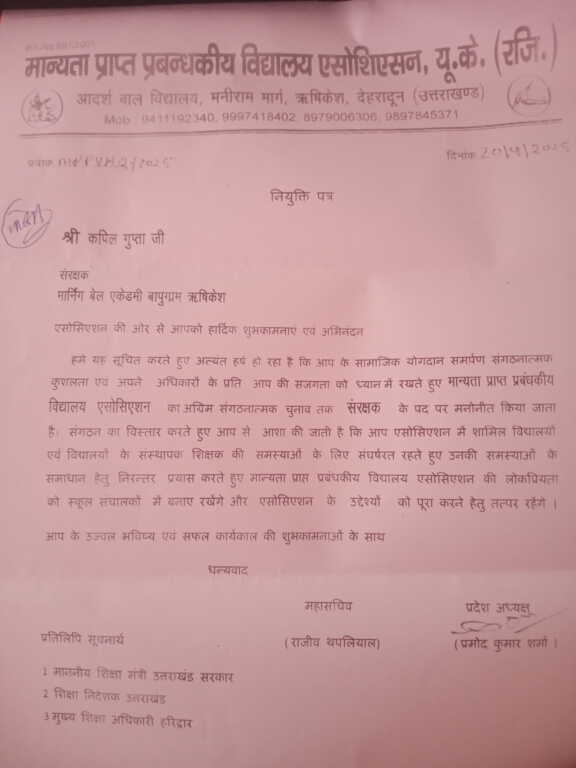 मान्यता प्राप्त प्रबन्धकीय विद्यालय एसोशिएसन, यू.के. (रजि.)
आदर्श बाल विद्यालय, मनीराम मार्ग, ऋषिकेश, देहरादून (उत्तराखण्ड)
Mob : 9411192340, 9997418402, 8979006306, 9897845371
दिनांक 20/4/2025
नियुक्ति पत्र
श्री कपिल गुप्ता जी
संरक्षक
मार्निंग बेल एकेडमी बापुग्राम ऋषिकेश
एसोसिएशन की ओर से आपको हार्दिक शुभकामनाएं एवं अभिनंदन
हमे यह सूचित करते हुए अत्यंत हर्ष हो रहा है कि आप के सामाजिक योगदान समर्पण संगठनात्मक
कुशलता एवं अपने अधिकारों के प्रति आप की सजगता को ध्यान में रखते हुए मान्यता प्राप्त प्रबंधकीय
विद्यालय एसोसिएशन का अग्रिम संगठनात्मक चुनाव तक संरक्षक के पद पर मनोनीत किया जाता
है। संगठन का विस्तार करते हुए आप से आशा की जाती है कि आप एसोसिएशन में शामिल विद्यालयों
एवं विद्यालयों के संस्थापक शिक्षक की समस्याओं के लिए संघर्षरत रहते हुए उनकी समस्याओं के
समाधान हेतु निरन्तर प्रयास करते हुए मान्यता प्राप्त प्रबंधकीय विद्यालय एसोसिएशन की लोकप्रियता
को स्कूल संचालकों में बनाए रखेंगे और एसोसिएशन के उद्देश्यों को पूरा करने हेतु तत्पर रहेंगे ।
आप के उज्वल भविष्य एवं सफल कार्यकाल की शुभकामनाओं के साथ
धन्यवाद
महासचिव प्रदेश अध्यक्ष
प्रतिलिपि सूचनार्थ (राजीव थपलियाल) (प्रमोद कुमार शर्मा ।
1 माननीय शिक्षा मंत्री उत्तराखंड सरकार
2 शिक्षा निदेशक उत्तराखंड
3 मुख्य शिक्षा अधिकारी हरिद्वार